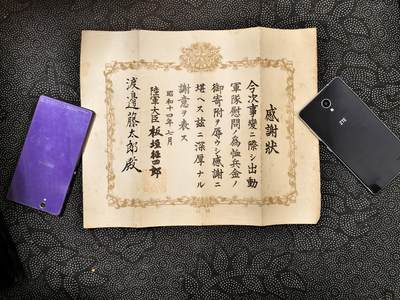 感謝狀
今次事變ニ際シ出動
軍隊慰問ノ為恤兵金ノ
御寄附ヲ辱ウシ感謝ニ
堪ヘス茲ニ深厚ナル
謝意ヲ表ス
昭和十四年七月
陸軍大臣 板垣征四郎
渡邉藤太郎殿
ZTE